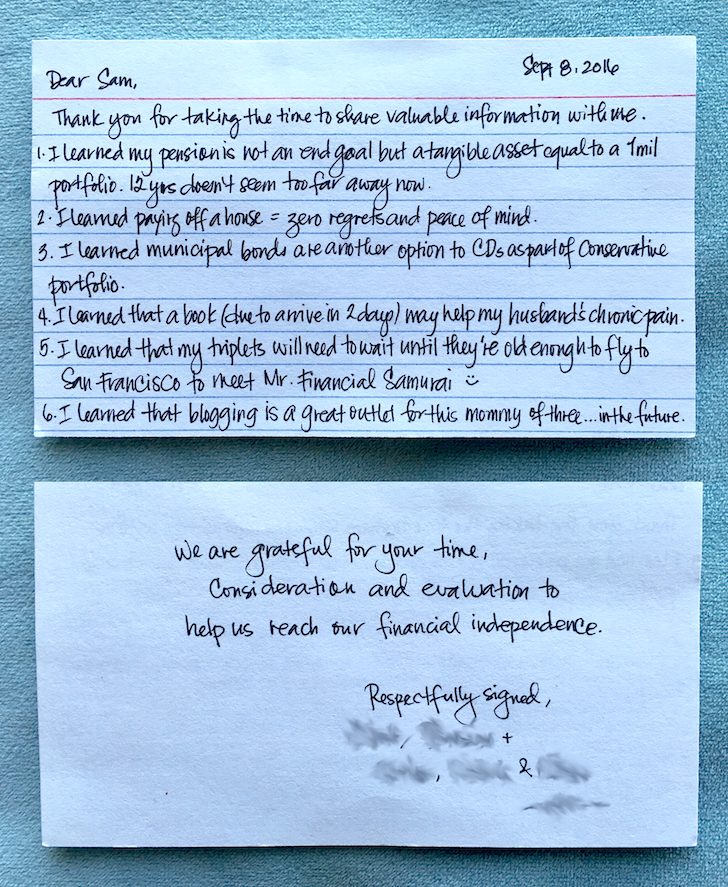 Dear Sam,
Sept 8, 2016
Thank you for taking the time to share valuable information with me.
1. I learned my pension is not an end goal but a tangible asset equal to a 1mil
portfolio. 12 yrs doesn't seem too far away now.
2. I learned paying off a house = zero regrets and peace of mind.
3. I learned municipal bonds are another option to CDs as part of Conservative
portfolio.
4. I learned that a book (due to arrive in 2 days) may help my husband's chronic pain.
5. I learned that my triplets will need to wait until they're old enough to fly to
San Francisco to meet Mr. Financial Samurai :)
6. I learned that blogging is a great outlet for this mommy of three... in the future.
We are grateful for your time,
Consideration and evaluation to
help us reach our financial independence.
Respectfully signed,
, +
, &